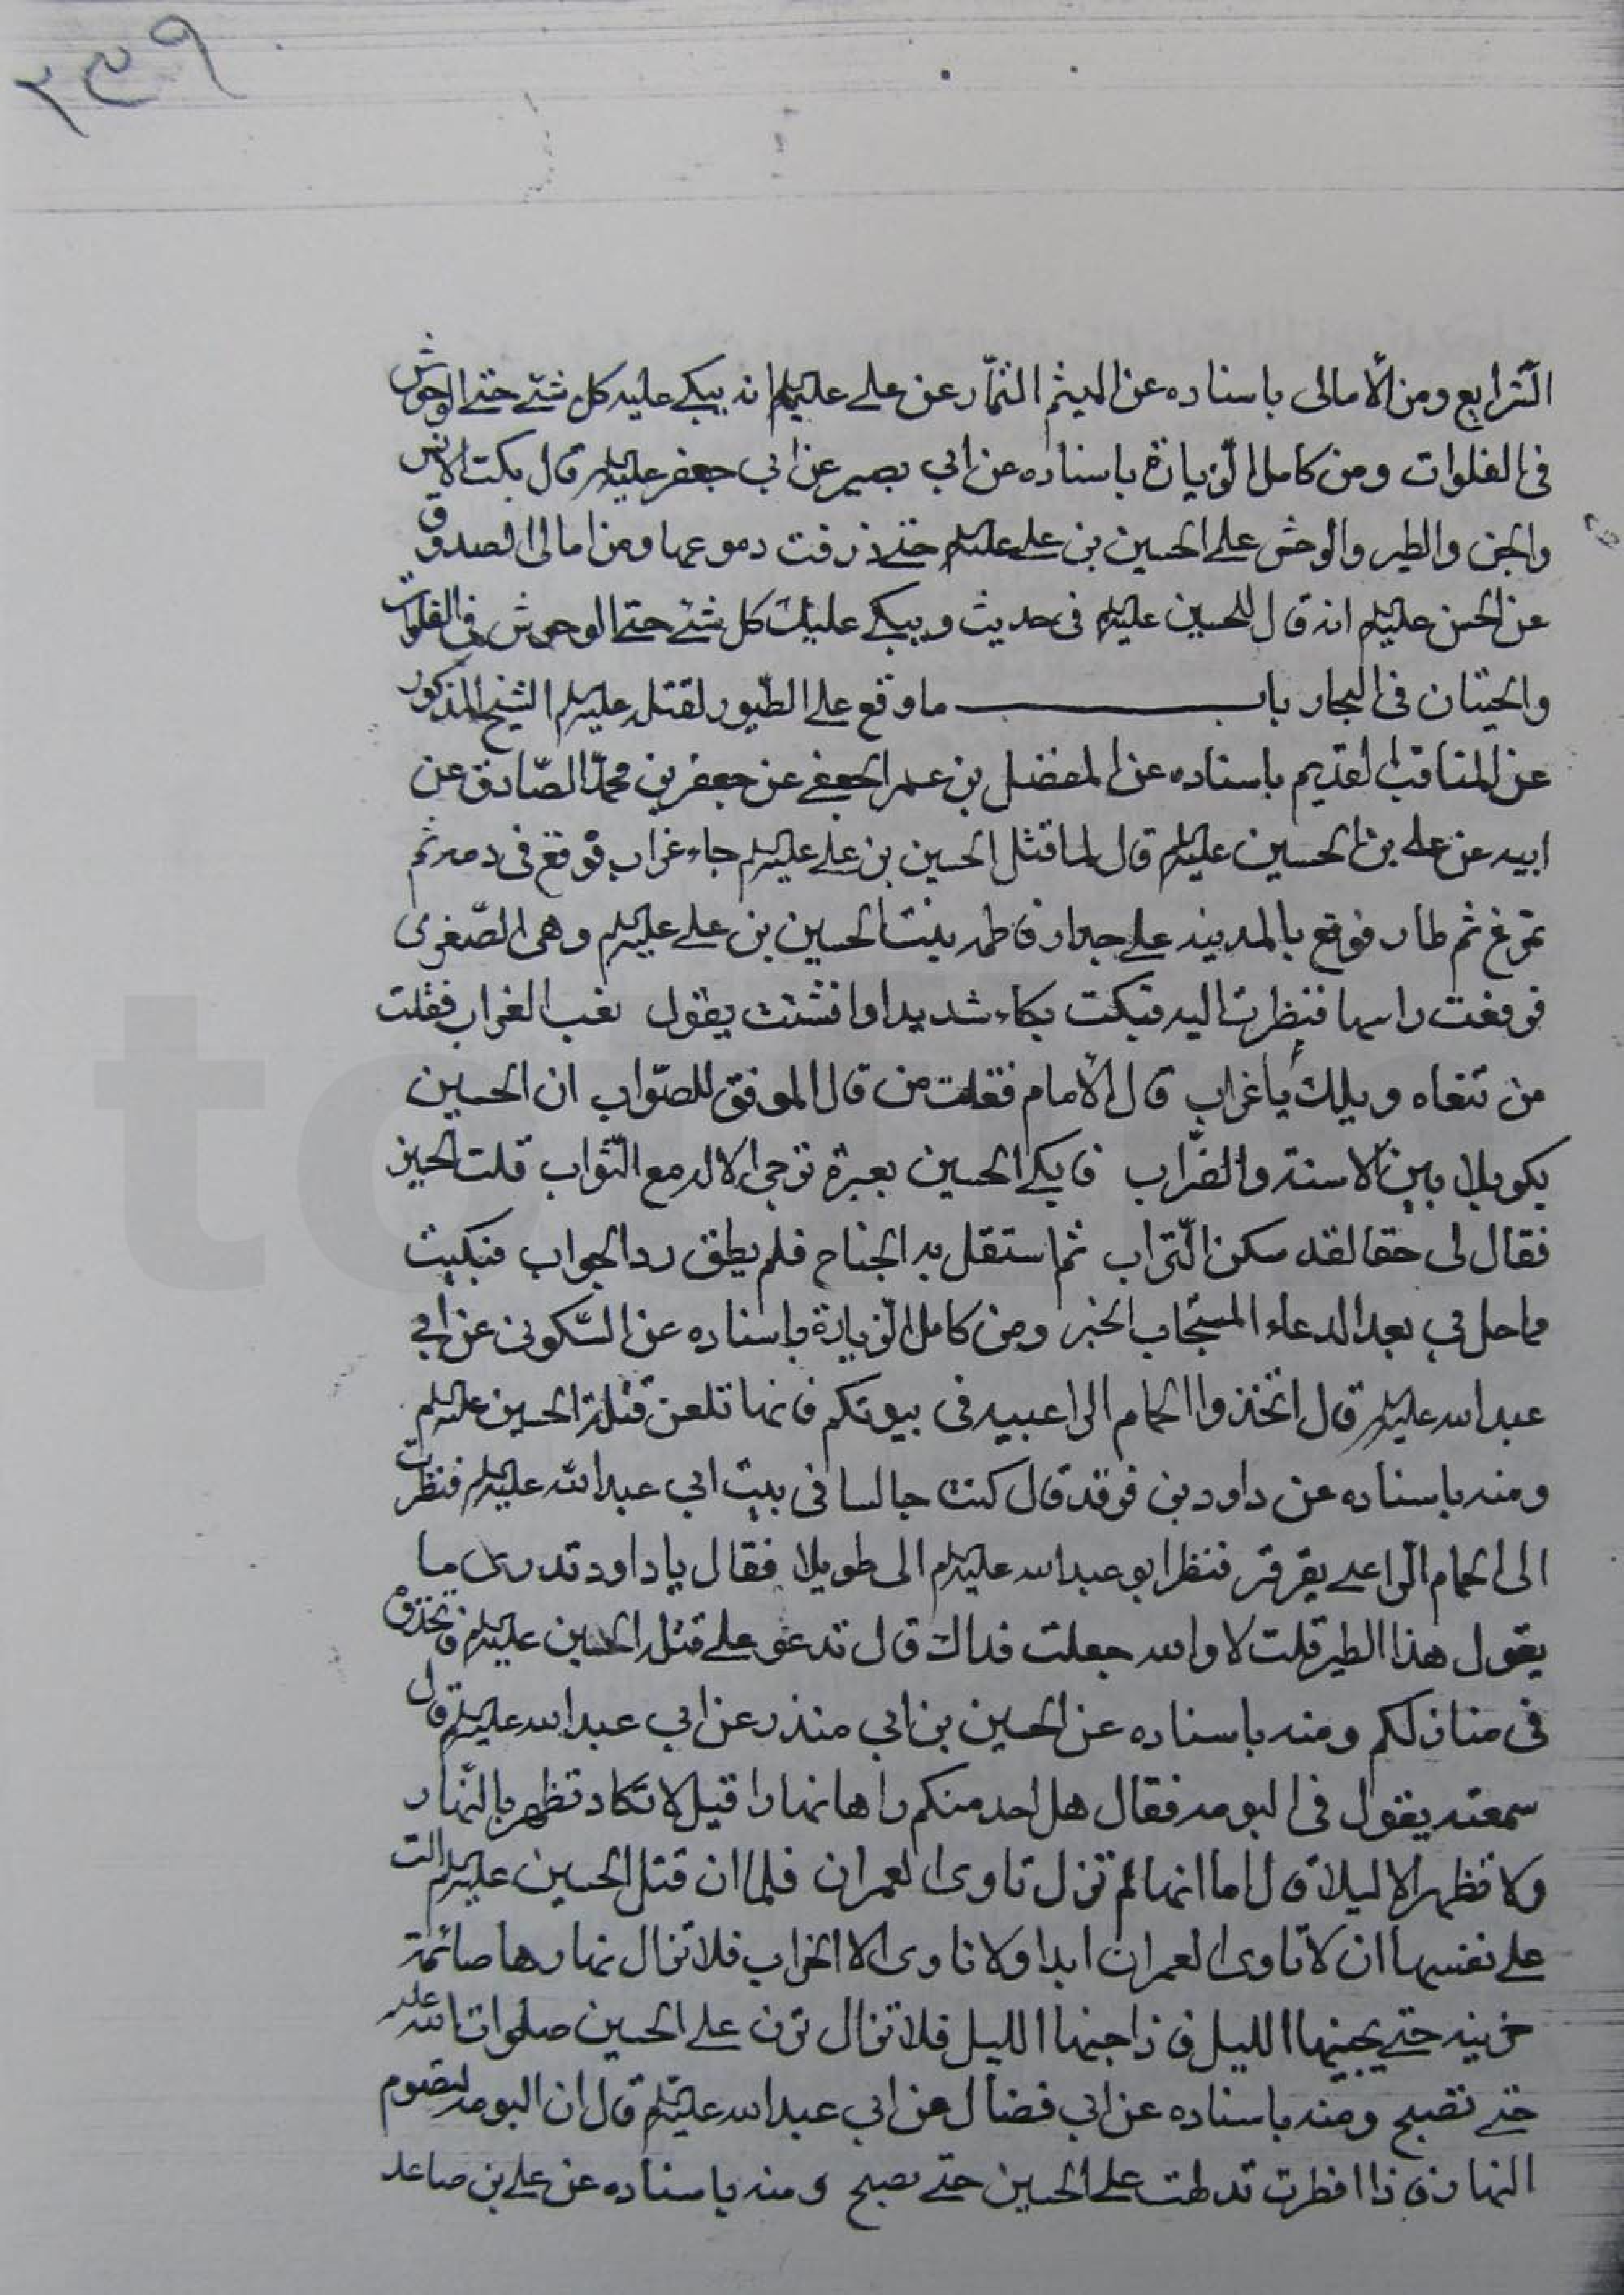 ٢٣٩
الترابع ومن الأمالى باسناده عن الميثم التمّار عن على عليه السلم انه يبكى عليه كل شئ حتى الوحوش
فى الفلوات ومن كامل الزيارة باسناده عن ابى بصير عن ابى جعفر عليه السلم قال بكت الانس
والجن والطير والوحش على الحسين بن على عليه السلم حتى ذرفت دموعها ومن امالى الصدوق
عن الحسن عليه السلم انه قال للحسين عليه السلم فى حديث ويبكى عليك كل شئ حتى الوحوش فى الفلوات
والحيتان فى البحار باب ما وقع على الطيور لقتله عليه السلم الشيخ المذكور
عن المناقب القديم باسناده عن المفضل بن عمر الجعفى عن جعفر بن محمد الصّادق عن
ابيه عن على بن الحسين عليه السلم قال لما قتل الحسين بن على عليه السلم جاء غراب فوقع فى دمه ثم
تمرّغ ثم طار فوقع بالمدينه على جدار فاطمه بنت الحسين بن على عليه السلم وهى الصّغرى
فرفعت راسها فنظرت اليه فبكت بكاء شديدا وانشئت يقول نعب الغراب فقلت
من تنعاه ويلك يا غراب قال الأمام فقلت من قال الموفق للصّواب ان الحسين
بكربلا بين الاسنة والضّراب فابكى الحسين بعبرة ترجى الاله مع الثّواب قلت الحسين
فقال لى حقا لقد سكن التّراب ثم استقل به الجناح فلم يطق رد الجواب فبكيت
مما حل بى بعد الدعاء المستجاب الخبر ومن كامل الزيارة باسناده عن السّكونى عن ابى
عبد الله عليه السلم قال اتخذوا الحمام الراعبيه فى بيوتكم فانها تلعن قتلة الحسين عليه السلم
ومنه باسناده عن داود بن فرقد قال كنت جالسا فى بيت ابى عبد الله عليه السلم فنظرت
الى الحمام الراعبى يقرقر فنظر ابو عبد الله عليه السلم الى طويلا فقال يا داود تدرى ما
يقول هذا الطير قلت لا والله جعلت فداك قال تدعو على قتلة الحسين عليه السلم فاتخذوه
فى منازلكم ومنه باسناده عن الحسين بن ابى منذر عن ابى عبد الله عليه السلم قال
سمعته يقول فى البومه فقال هل احد منكم راها نهارا قيل لا تكاد تظهر بالنّهار
ولا تظهر الا ليلا قال اما انها لم تزل تاوى العمران فلما ان قتل الحسين عليه السلم الت
على نفسها ان لا تاوى العمران ابدا ولا تاوى الا الخراب فلا تزال نهارها صائمة
حزينه حتى يجنها الليل فاذا جنها الليل فلا تزال ترن على الحسين صلوات الله عليه
حتى تصبح ومنه باسناده عن ابى فضال عن ابى عبد الله عليه السلم قال ان البومه لتصوم
النهار فاذا افطرت تدلهت على الحسين حتى تصبح ومنه باسناده عن على بن صاعد